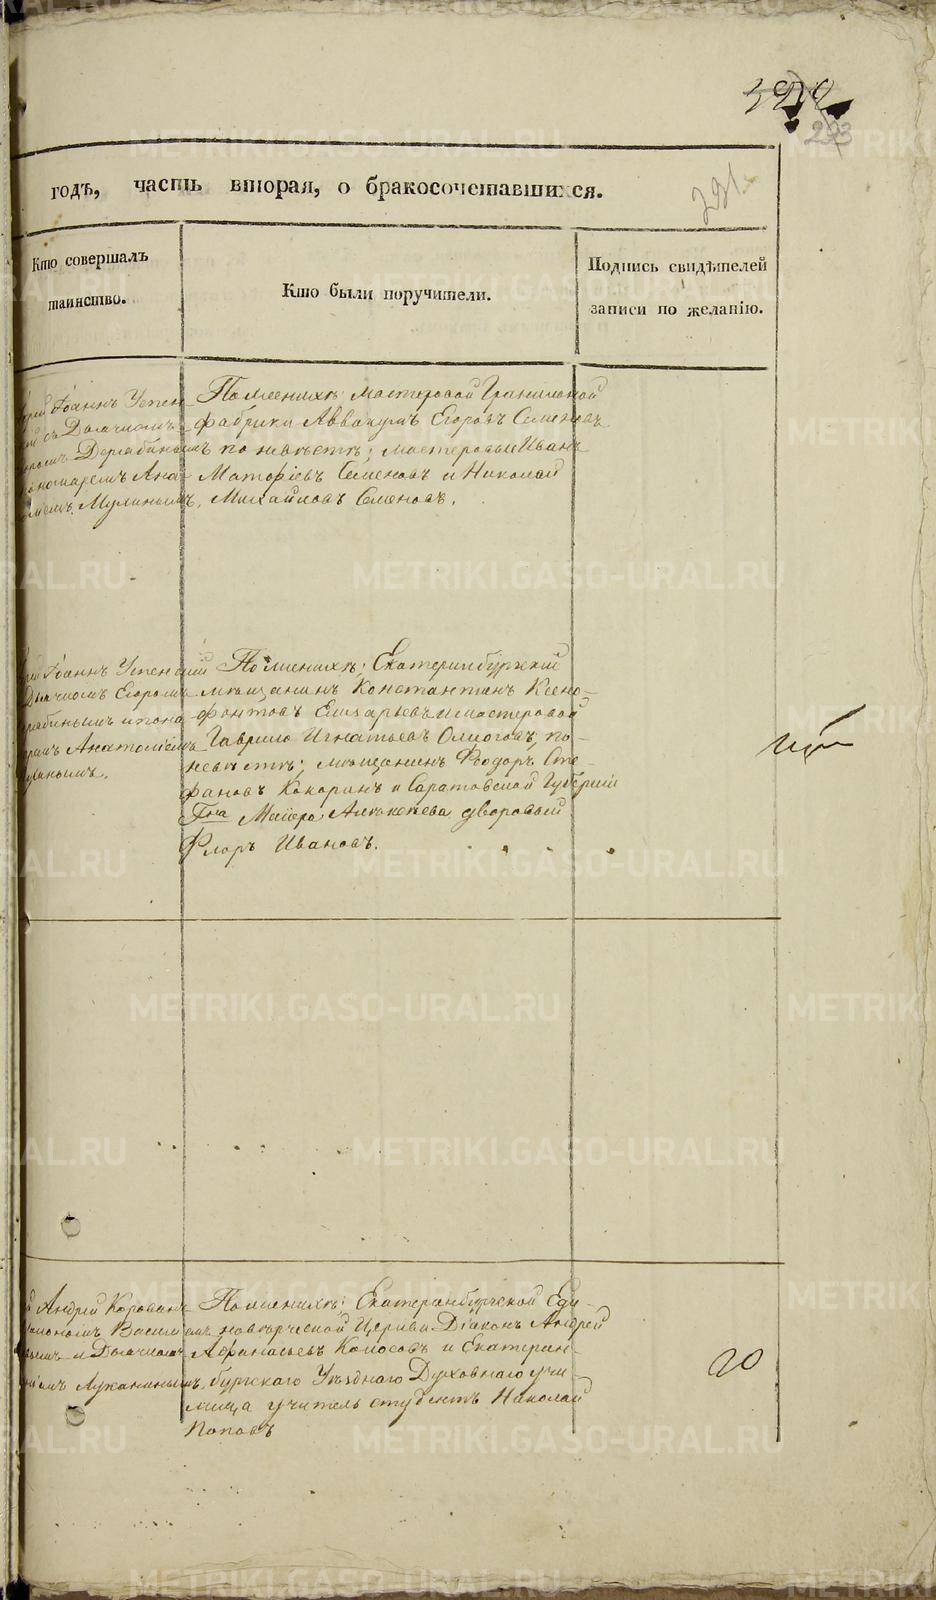 293
291
годѣ, часть вторая, о бракосочетавшихся.
Кто совершалъ
таинство.
Кто были поручители.
Подпись свидѣтелей
записи по желанію.
Іоаннъ Успен-
съ Дьячкомъ
Дерябинымъ
пономаремъ Ана-
Мулинымъ.
По женихѣ: мастеровой Гранильной
фабрики Аввакумъ Егоровъ Семеновъ
по невѣстѣ; мастеровые Иванъ
Матфіевъ Семеновъ и Николай
Михайловъ Семеновъ.
Іоаннъ Успенскій
Дьячкомъ Егоромъ
и поно-
Анатоліемъ
По женихѣ; Екатеринбургскій
мѣщанинъ Константинъ Ксено-
фонтовъ и мастеровой
Гаврило Игнатьевъ по
невѣстѣ; мѣщанинъ Ѳеодоръ Сте-
фановъ Кокоринъ и Саратовской Губерніи
Гна Маіора Алексѣева дворовый
Флоръ Ивановъ.
Андрей
Василі
и Дьячкомъ
Лукинымъ.
По женихѣ; Екатеринбургской Еди-
новѣрческой Церкви Діаконъ Андрей
Афанасьевъ Колосовъ и Екатерин-
бургскаго Уѣзднаго Духовнаго учи-
лища учитель студентъ Николай
Поповъ
20
METRIKI.GASO-URAL.RU